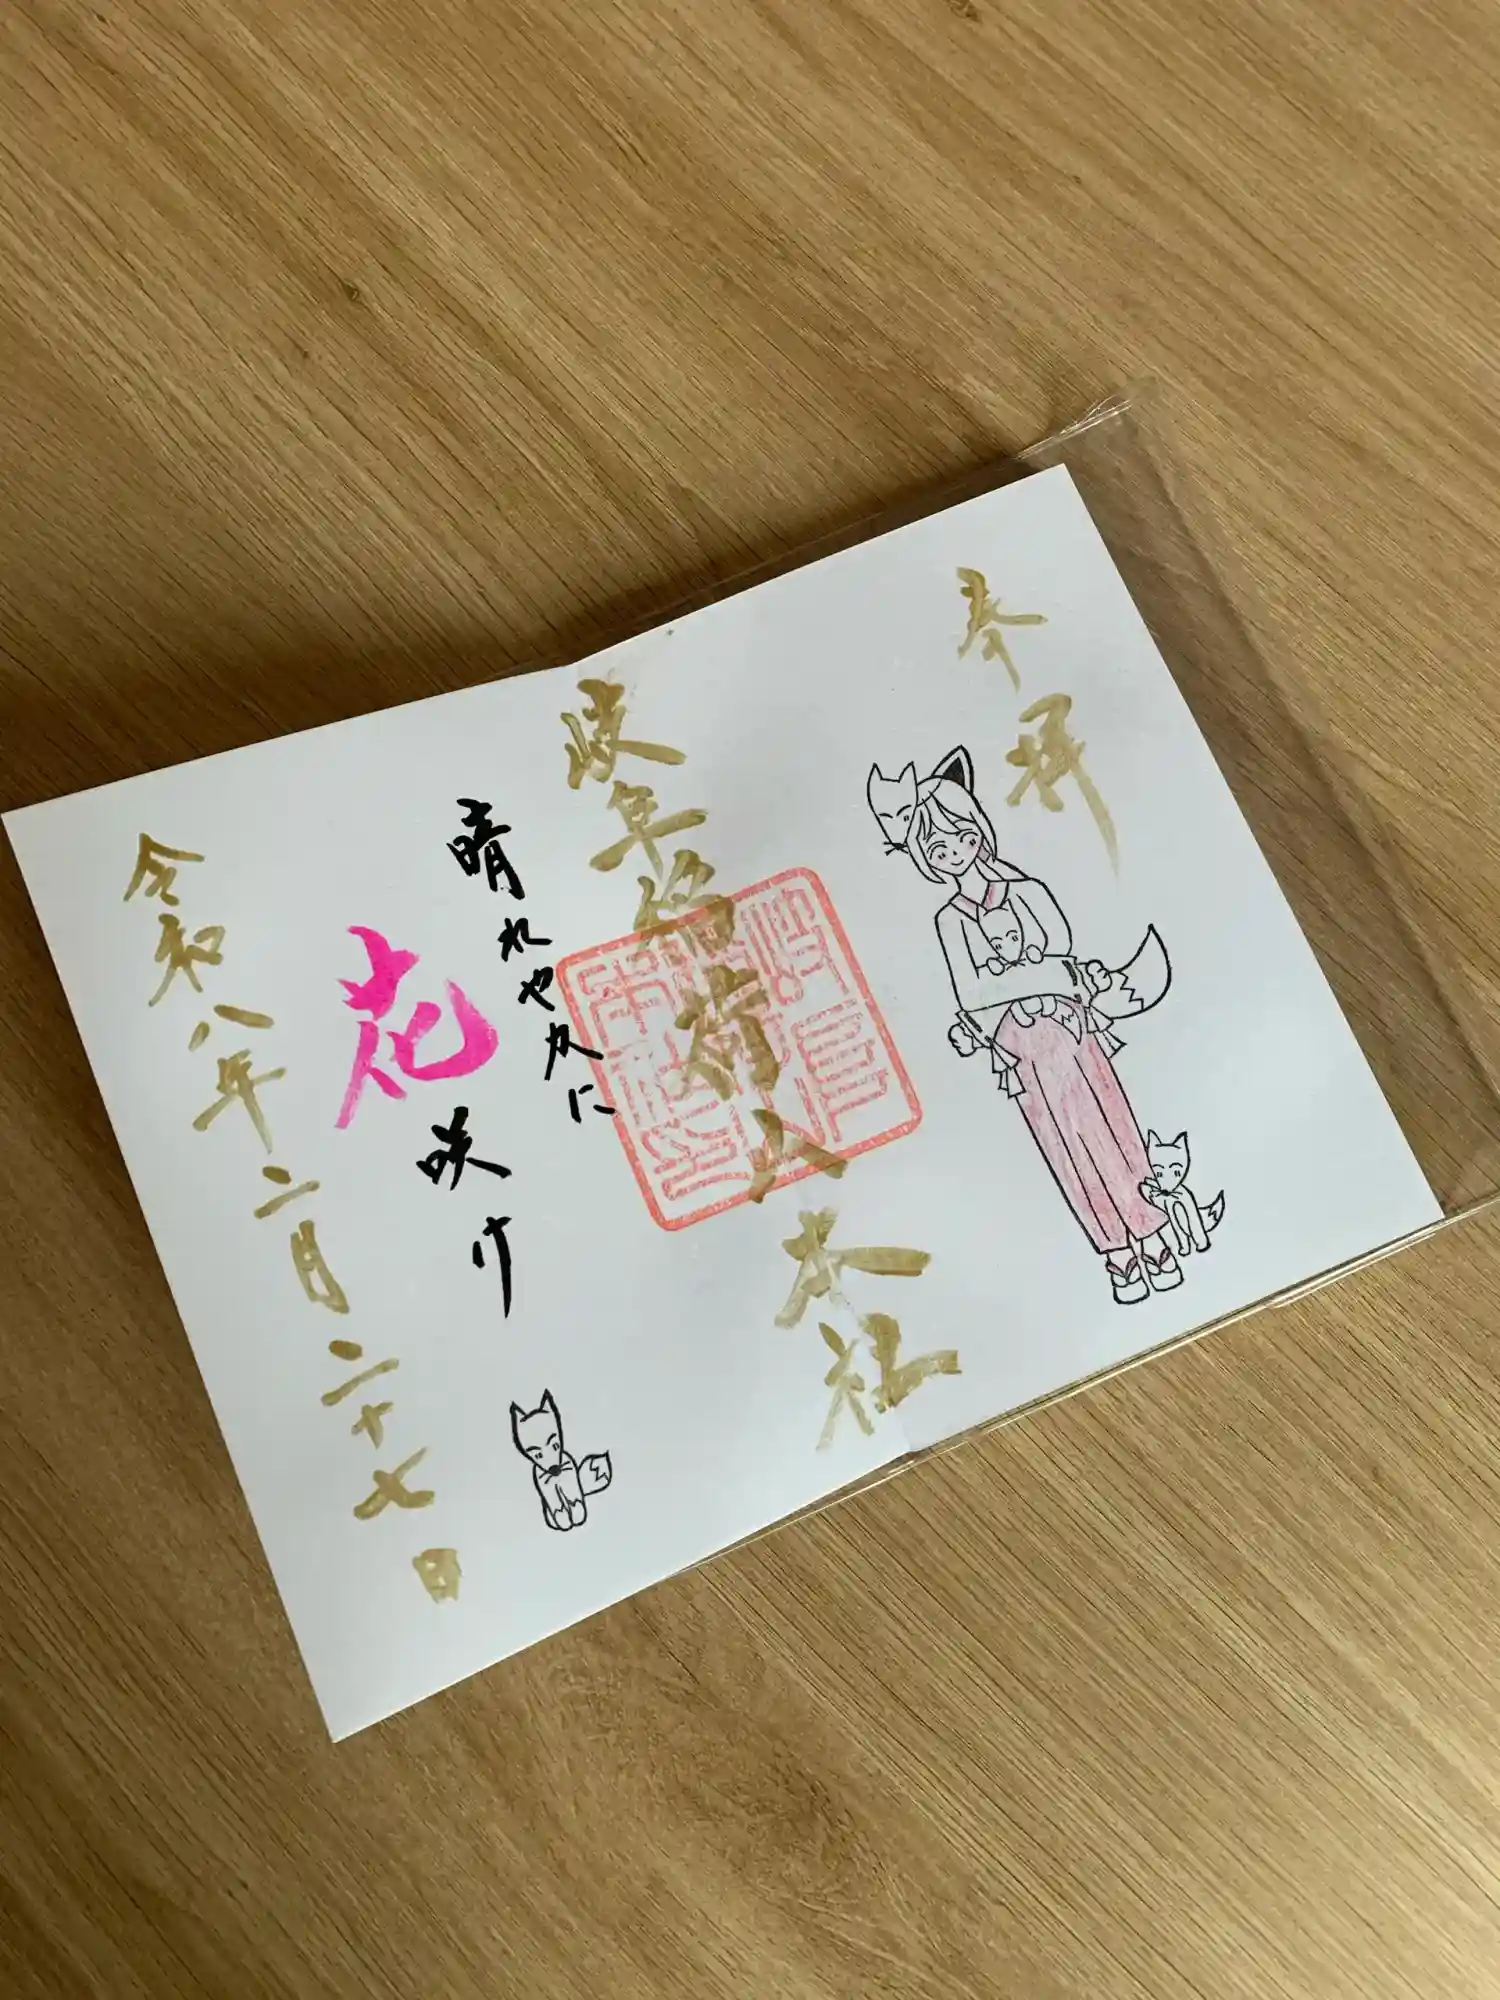 奉拝
岐阜稲荷山本社
晴れやかに
花咲け
令和八年二月二十七日